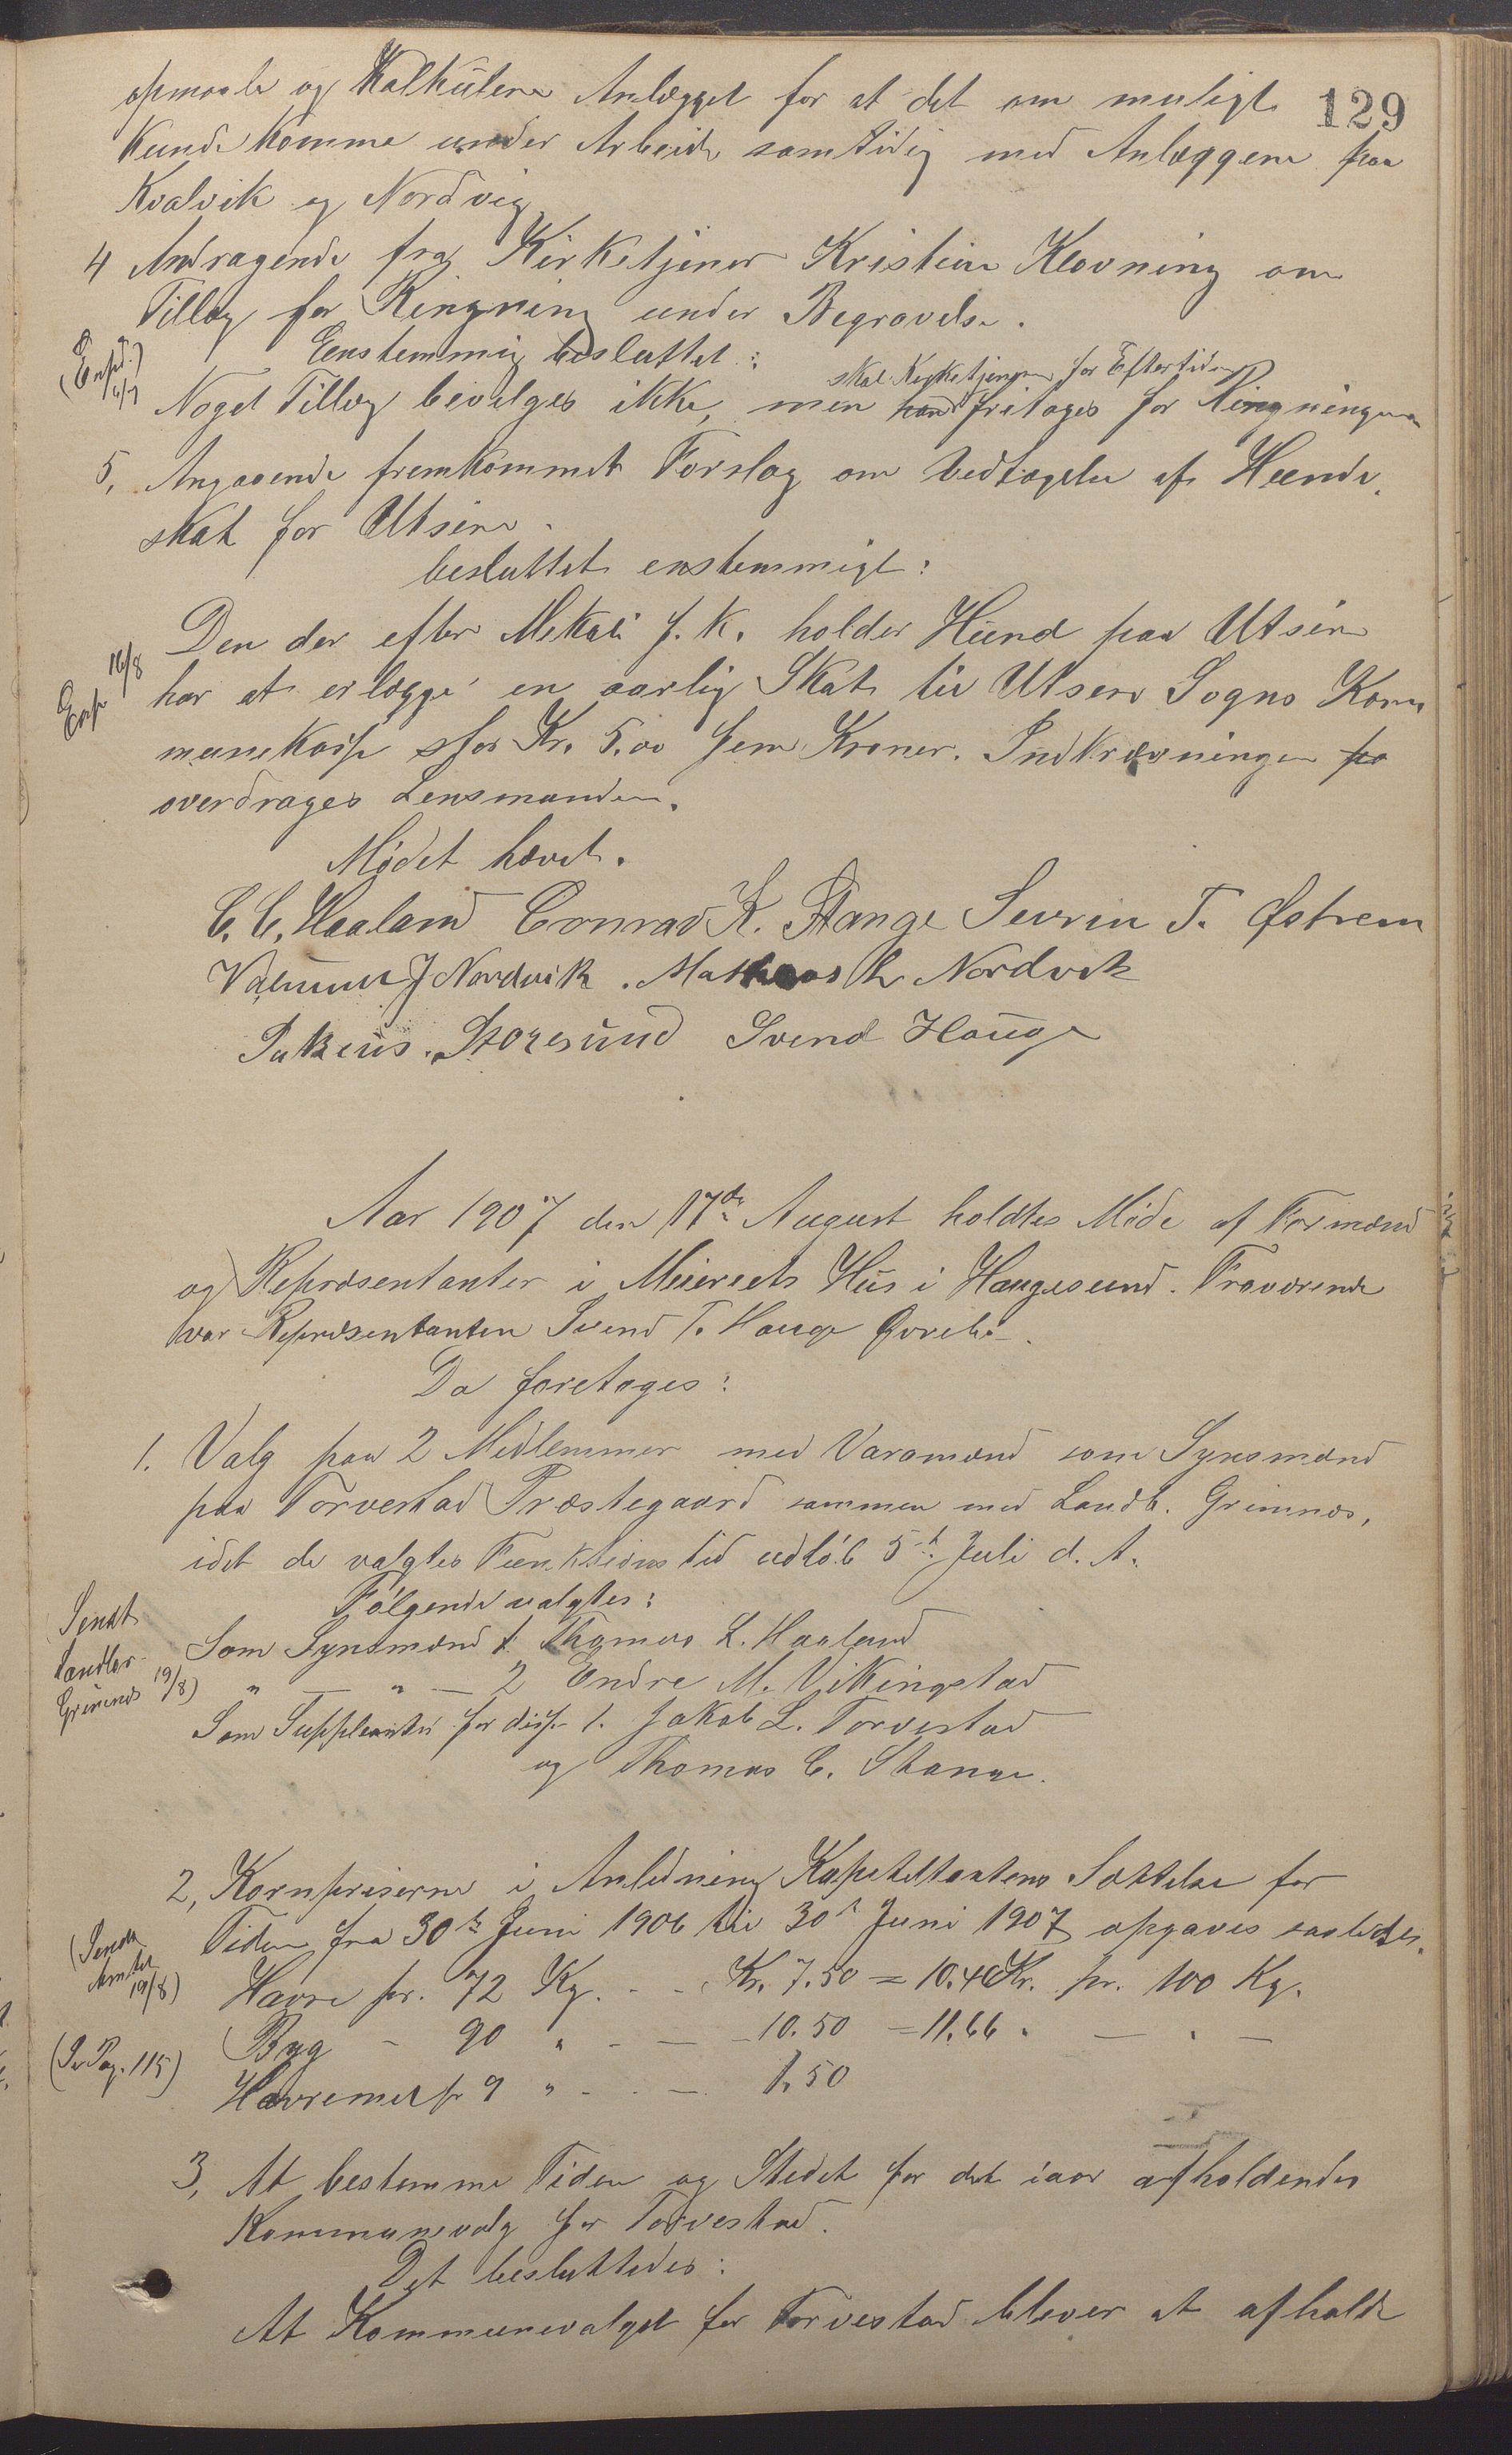 129
opmaale og Kalkulere Anlægget for at det om muligt
Kunde Komme under Arbeide samtidig med Anlæggene paa
Kvalvik og Nordvig
4 Andragende fra Kirketjener Kristian Klovning om
Tillæg for Ringning under Begravelse.
Eenstemmig besluttet:
skal Kirketjeneren for Eftertiden
Noget Tillæg bevilges ikke, men han fritages for Ringningen
5, Angaaende fremkommet Forslag om Vedtagelse af Hunde-
skat for Utsire.
besluttet enstemmigt:
Den der efter Mikali f. K. holder Hund paa Utsire
(Exp. 16/8
har at erlægge en aarlig Skat til Utsire Sogns Kom
munekasse stor Kr. 5.00 fem Kroner. Indkrævningen pa
overdrages Lensmanden.
Mødet hævet.
C. C. Haaland Conrad K. Stange Sevrin T. Østrem
Valentin J Nordvik. Mathias L Nordvik
Rakeus. Storesund Svend Hauge
Aar 1907 den 17de August holdtes Møde af Formænd
og Repræsentanter i Meieriets Hus i Haugesund. Fraværende
var Repræsentanten Svend T. Hauge
Da foretoges:
1. Valg paa 2 Medlemmer med Varamænd som Synsmænd
paa Torvestad Præstegaard sammen med Landb. Grimnes,
idet de valgtes Funktionstid udløb 5te Juli d. A.
Følgende valgtes:
(Sendt
Landbr.
Grimnes 19/8)
Som Synsmænd 1. Thomas L. Haaland
" — " — 2 Endre M. Vikingstad
Som Suppleanter for disse 1. Jakob L. Torvestad
og Thomas C. Stange.
2, Kornpriserne i Anledning Kapiteltakstens Sættelse for
Tiden fra 30te Juni 1906 til 30te Juni 1907 opgaves saaledes.
(Sendt
Amtet
19/8)
Havre pr. 72 Kg. - - Kr. 7.50 = 10.40 Kr. pr. 100 Kg.
(Se Pag. 115)
Byg - 90 " - — - 10.50 = 11.66 " — " —
Havremel pr 9 " - - — 1.50
3, At bestemme Tiden og Stedet for det iaar afholdendes
Kommunevalg for Torvestad.
Det besluttedes:
At Kommunevalget for Torvestad bliver at afholde